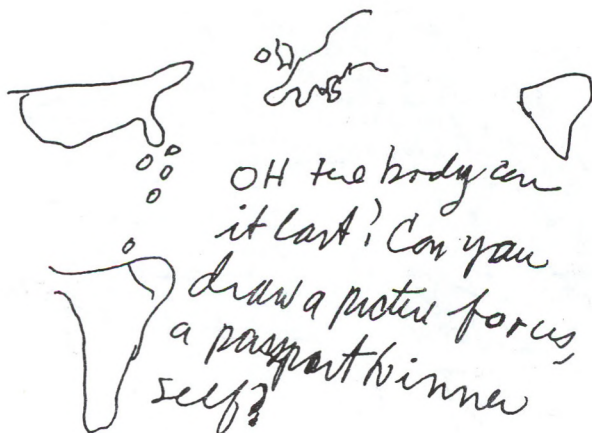 OH the body can
it last? Can you
draw a picture for us,
a passport to inner
self?